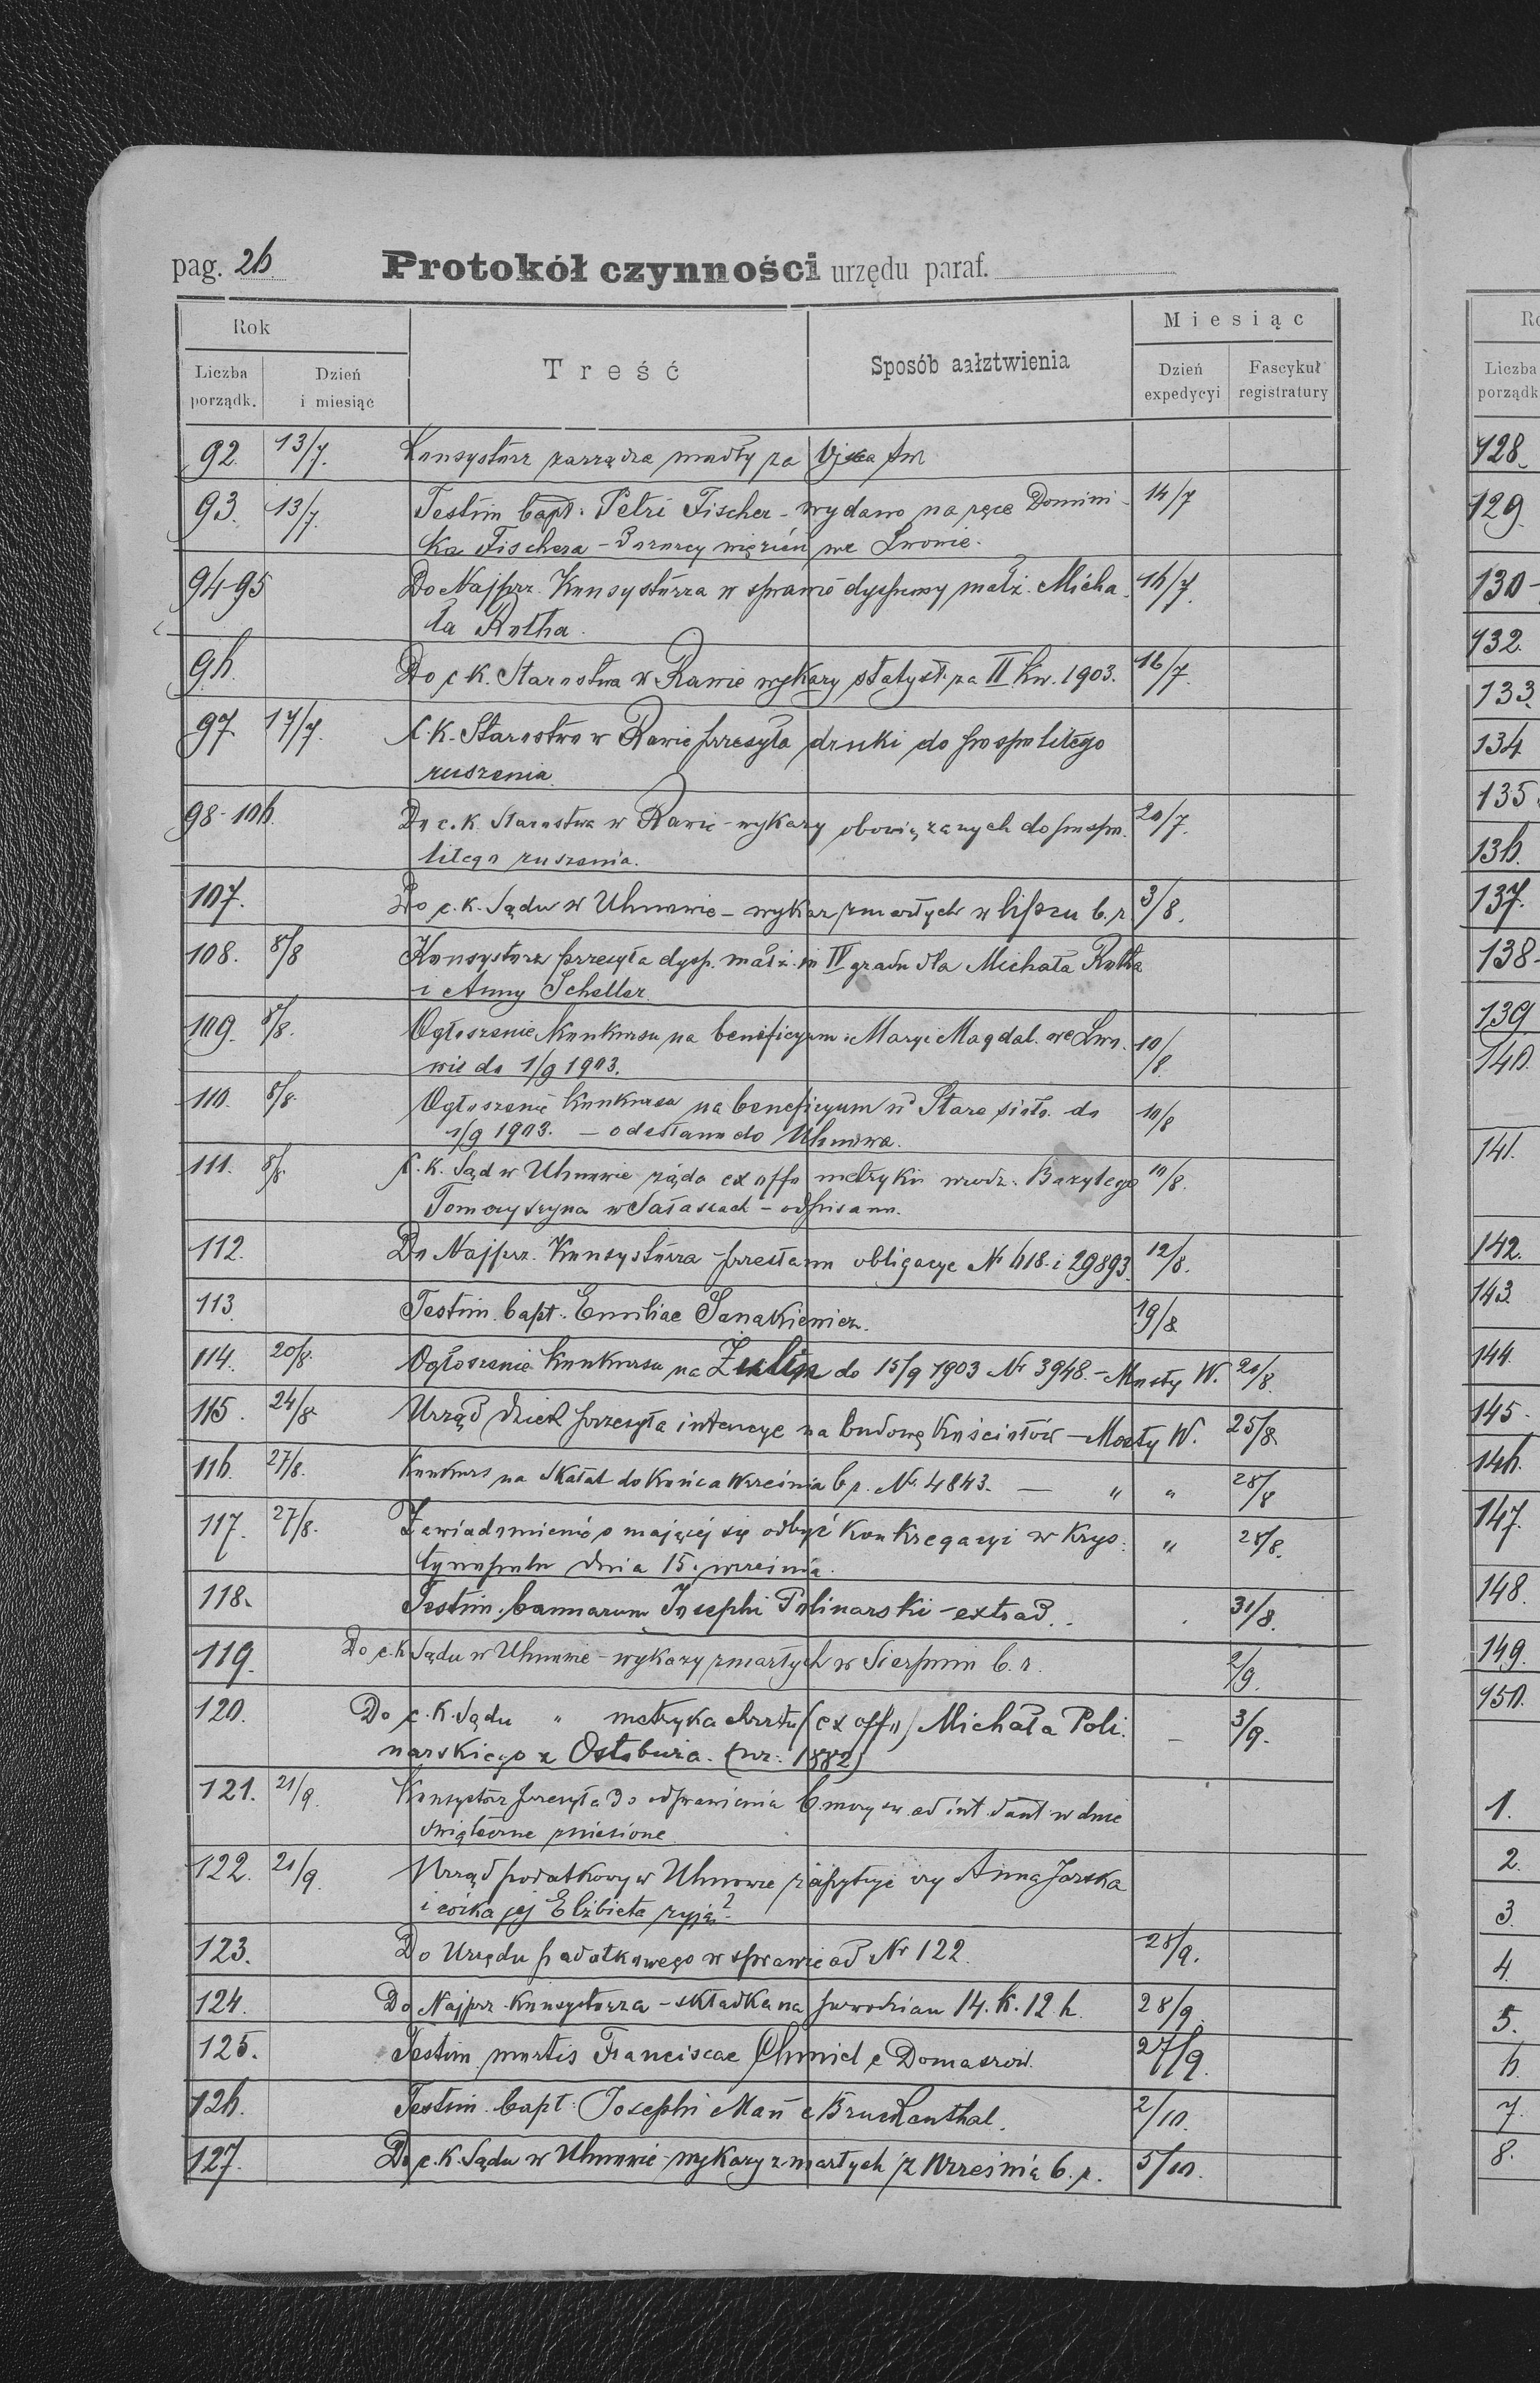 pag. 26 Protokół czynności urzędu paraf.
Rok Treść Sposób aałztwienia Miesiąc
Liczba porządk. Dzień i miesiąc Dzień expedycyi Fascykuł registratury
92. 13/7. Konsystorz zarządza modły za Ojca św
93. 13/7. Testim bapt. Petri Fischer - wydano na ręce Domini- 14/7
ka Fischera - Dozorcy więzień we Lwowie.
94-95 Do Najprz. Konsystorza w sprawie dyspensy małż. Micha 16/7.
ła Rotha.
96. Do c k. Starostwa w Rawie wykazy statyst. za II kw. 1903. 16/7.
97. 17/7. C. K. Starostwo w Rawie przesyła druki do pospolitego
ruszenia.
98-106. Do c. k. Starostwa w Rawie - wykazy obowiązanych do pospo. 20/7.
litego ruszenia.
107. Do c. k. Sądu w Uhnowie - wykaz zmarłych w lipcu b. r. 3/8.
108. 8/8 Konsystorz przesyła dysp. małż. in IV gradu dla Michała Rotha
i Anny Scheller.
109. 8/8. Ogłoszenie Konkursu na beneficyum: Maryi Magdal. we Lwo. 10/8
wie do 1/9 1903.
110. 8/8. Ogłoszenie Konkursu na beneficyum Stare sioło. do 10/8
1/9 1903. - odesłano do Uhnowa.
111. 8/8. C. K. Sąd w Uhnowie żąda ex offo metryki urodz. Bazylego 10/8.
w Sałaszach - odpisano.
112. Do Najprz. Konsystorza przesłano obligacye № 618. i 29893. 12/8.
113. Testim. bapt. Emiliae Sanakiewicz. 19/8
114. 20/8. Ogłoszenie Konkursu na Żulin do 15/9 1903 № 3948. - Mosty W. 21/8.
115. 24/8. Urząd dziek przesyła intencye na budowę Kościołów - Mosty W. 25/8
116. 27/8. Konkurs na Skałat do Końca Września b r. №. 4843. — " " 28/8
117. 27/8. Zawiadomienie o mającej się odbyć Konkregacyi w Krys: " 28/8.
tynopolu dnia 15. września.
118. Testim. bannorum Josephi Polinarski - extrad. 31/8.
119. Do c. k Sądu w Uhnowie - wykazy zmarłych w Sierpniu b. r. 2/9.
120. Do c. k. Sądu " metryka chrztu (ex offo) Michała Poli. - 3/9.
narskiego z Ostobuża. (ur: 1882)
121. 21/9. Konsystorz przesyła do odprawienia 6 mszy św ad int. dant. w dnie
świąteczne zniesione
122. 21/9. Urząd podatkowy w Uhnowie zapytuje czy Anna Jarska
i córka jej Elżbieta żyją?
123. Do Urzędu podatkowego w sprawie ad Nr 122. 28/9.
124. Do Najprz. Konsystorza - składka na powodzian 14. K. 12 h. 28/9.
125. Testim. mortis Franciscae Chmiel e Domaszów. 27/9.
126. Testim. bapt. Josephi Mań e Bruckenthal. 2/10.
127. Do c. k. Sądu w Uhnowie - wykazy zmarłych z Września b. r. 5/10.
Liczba
porządk
128.
129.
130-
132.
133.
134
135.
136.
137.
138-
139.
140.
141.
142.
143.
144.
145.
146.
147.
148.
149.
150.
1.
2.
3.
4.
5.
6.
7.
8.